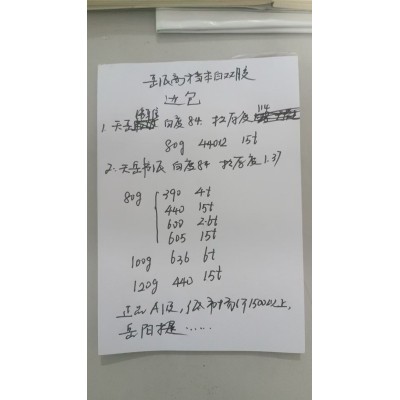 岳纸高档本白双胶
边包
1. 天岳 白度84 松厚度 1.14
80g 44012 15t
2. 天岳 白度84 松厚度1.37
80g 390 4t
440 15t
600 2.6t
605 15t
100g 636 6t
120g 440 15t
正品A级, 低市场价1500以上,
岳阳提……